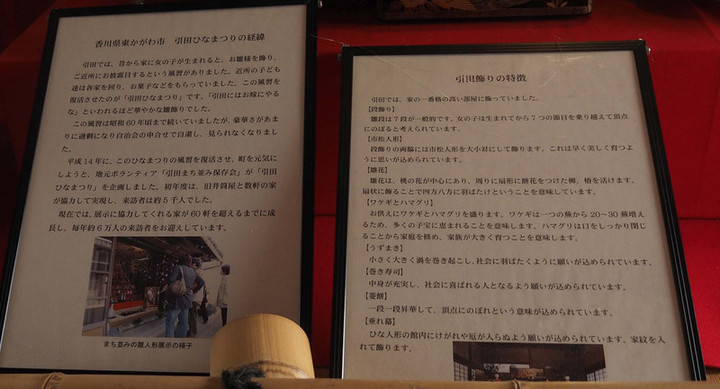 香川県東かがわ市　引田ひなまつりの経緯
引田では、昔から家に女の子が生まれると、お雛様を飾り、
ご近所にお披露目するという風習がありました。近所の子ども
達は各家を回り、お菓子などをもらっていました。この風習を
復活させたのが「引田ひなまつり」です。「引田にはお嫁にやる
な」といわれるほど華やかな雛飾りでした。
この風習は昭和 60 年頃まで続いていましたが、豪華さがあま
りに過剰になり自治会の申合せで自粛し、見られなくなりまし
た。
平成 14 年に、このひなまつりの風習を復活させ、町を元気に
しようと、地元ボランティア「引田まち並み保存会」が「引田
ひなまつり」を企画しました。初年度は、旧井筒屋と数軒の家
が協力して実現し、来訪者は約 5 千人でした。
現在では、展示に協力してくれる家が 60 軒を超えるまでに成
長し、毎年約 6 万人の来訪者をお迎えしています。
まち並みの雛人形展示の様子
引田飾りの特徴
引田では、家の一番格の高い部屋に飾っていました。
【段飾り】
雛段は 7 段が一般的です。女の子は生まれてから 7 つの節目を乗り越えて頂点
にのぼると考えられています。
【市松人形】
段飾りの両脇には市松人形を大小対にして飾ります。これは早く美しく育つよ
うに思いが込められています。
【雛花】
雛花は、桃の花が中心にあり、周りに扇形に餅花をつけた柳、椿を活けます。
扇状に飾ることで四方八方に羽ばたけということを意味しています。
【ワケギとハマグリ】
お供えにワケギとハマグリを盛ります。ワケギは一つの株から 20～30 株増え
るため、多くの子宝に恵まれることを意味します。ハマグリは口をしっかり閉じ
ることから家庭を修め、家族が大きく育つことを意味します。
【うずまき】
小さく大きく渦を巻き起こし、社会に羽ばたくように願いが込められています。
【巻き寿司】
中身が充実し、社会に喜ばれる人となるよう願いが込められています。
【菱餅】
一段一段昇華して、頂点にのぼれという意味が込められています。
【垂れ幕】
ひな人形の館内にけがれや厄が入らぬよう願いが込められています。家紋を入
れて飾ります。